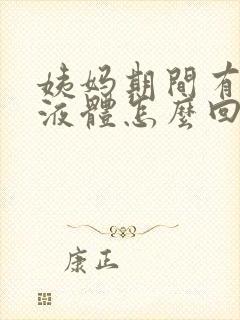 姨妈期間有
液體怎麼回
康正